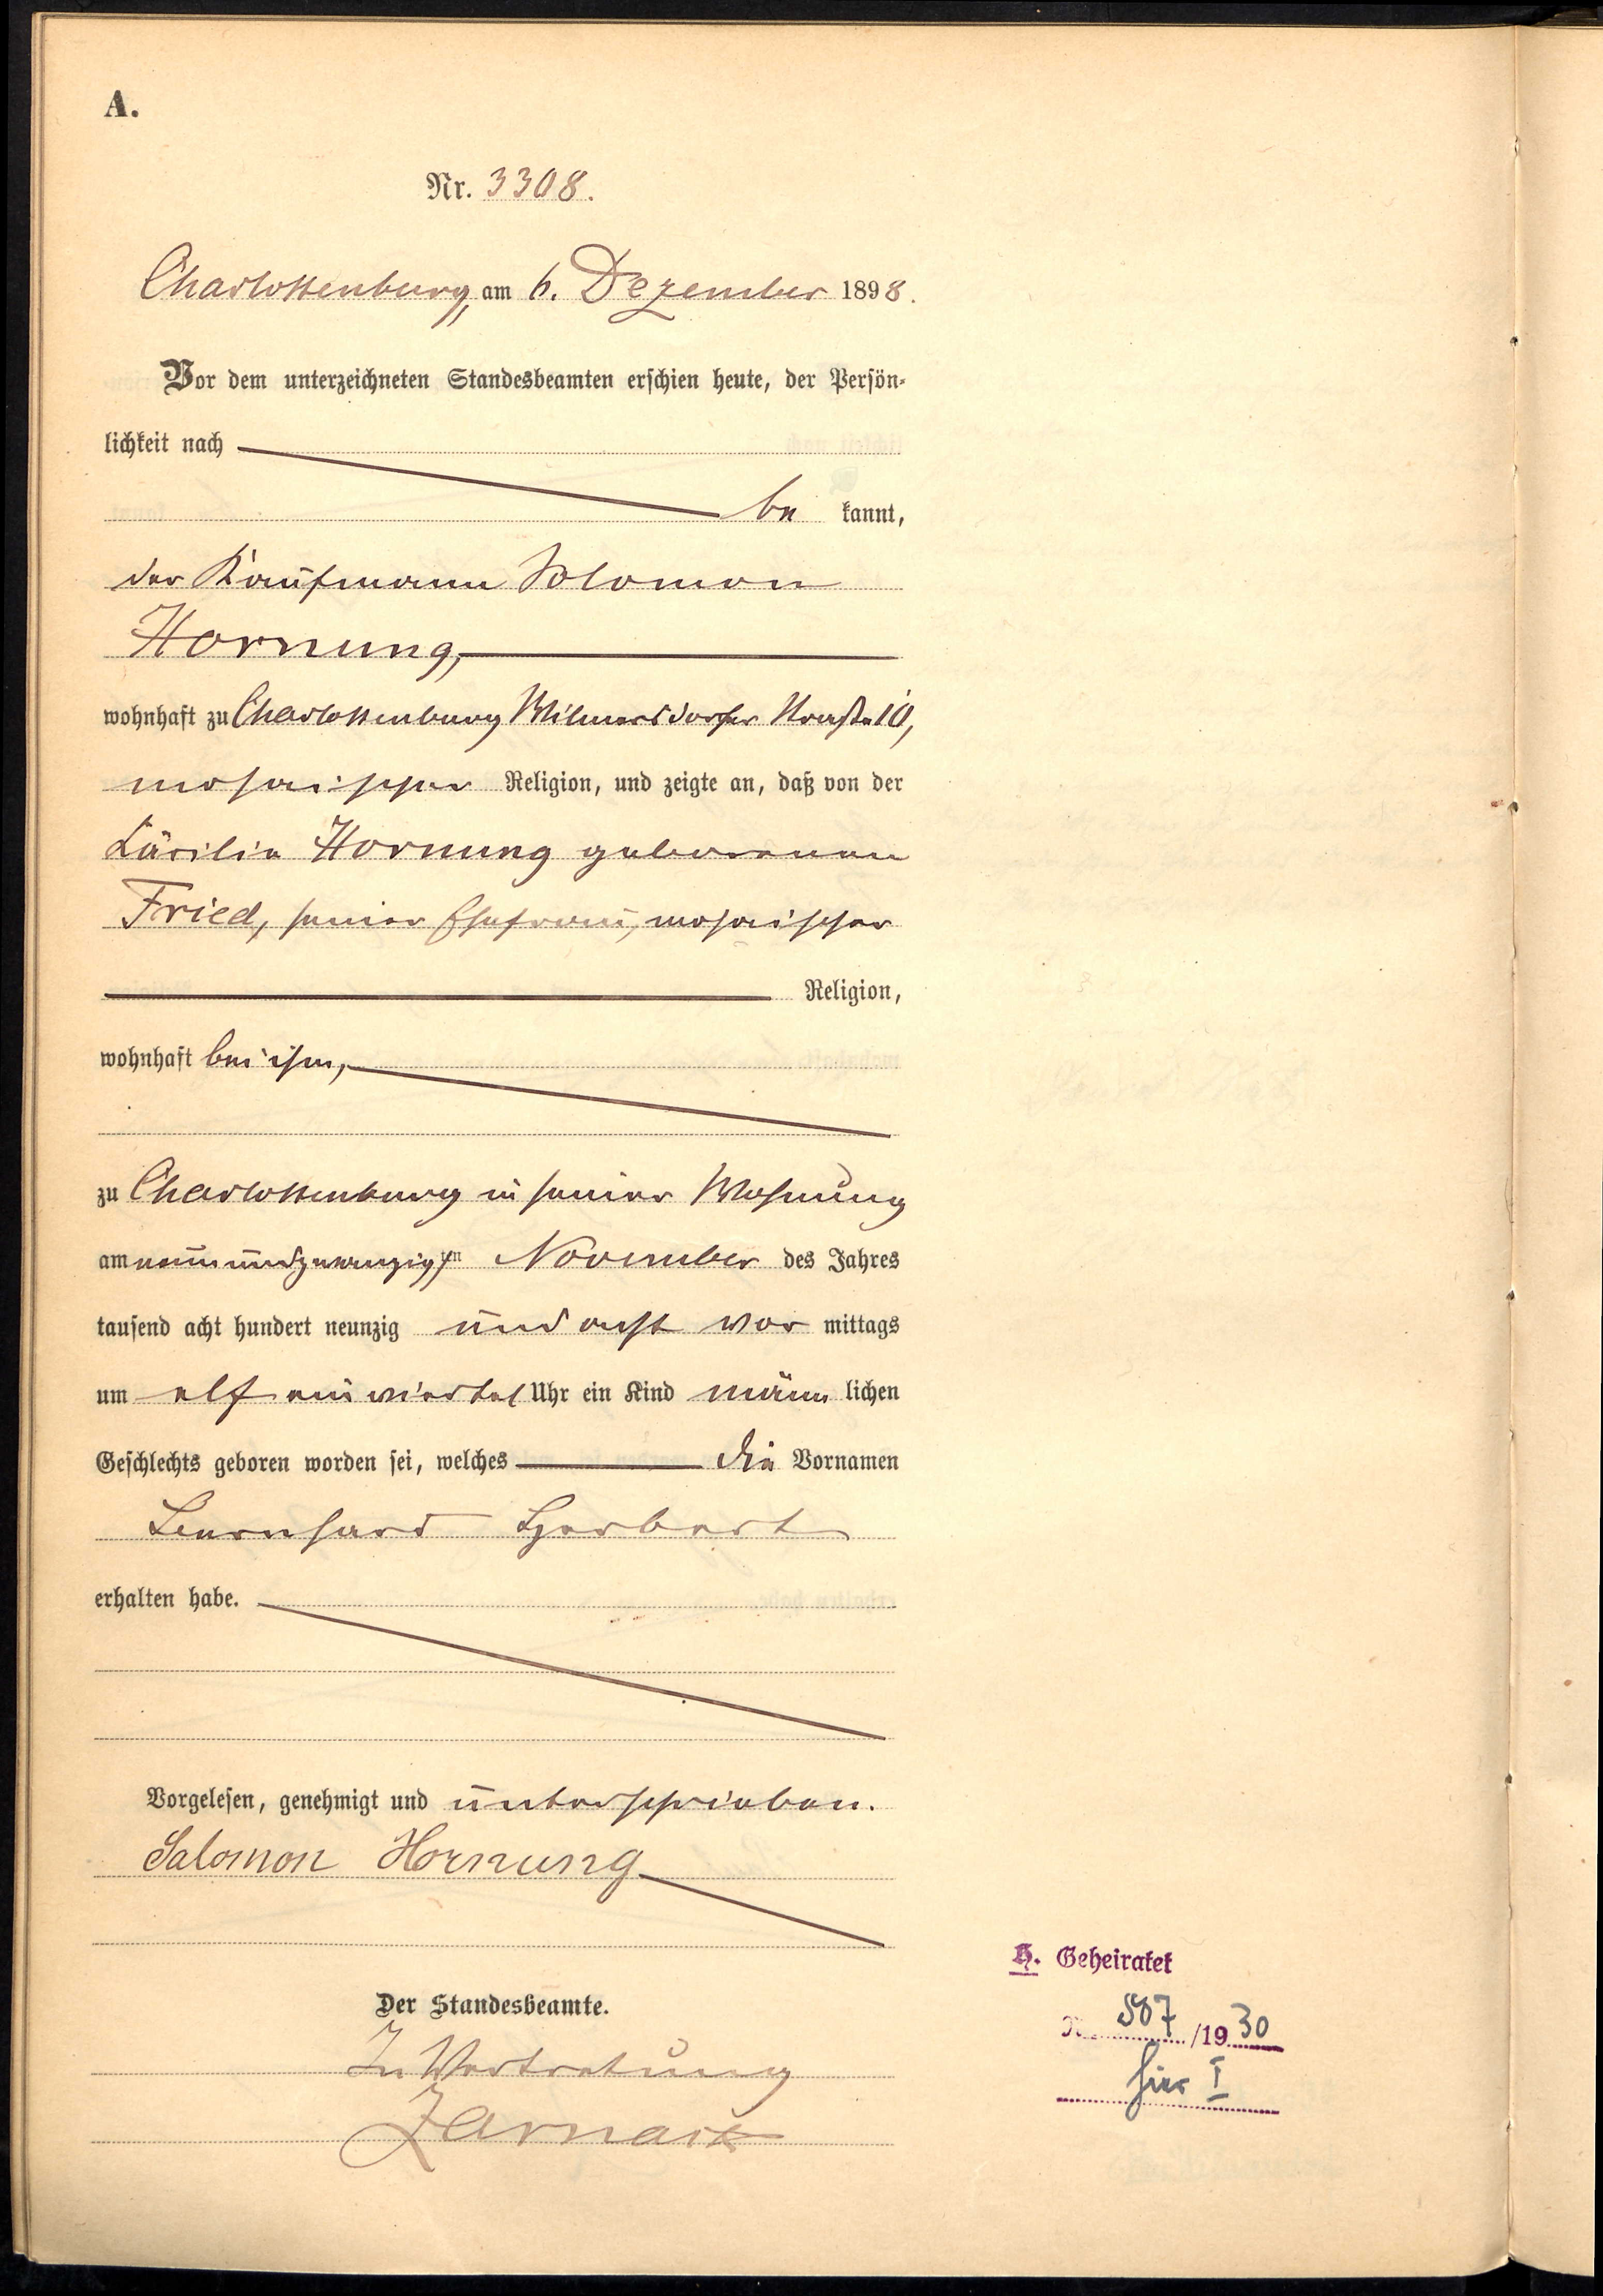 A.
Nr. 3308.
Charlottenburg, am 6. Dezember 1898.
Vor dem unterzeichneten Standesbeamten erschien heute, der Persön-
lichkeit nach
be kannt,
der Kaufmann Salomon
Hornung,
wohnhaft zu Charlottenburg Wilmersdorfer Straße 10,
mosaischer Religion, und zeigte an, daß von der
Cäcilie Hornung geborenen
Fried, seiner Ehefrau, mosaischer
Religion,
wohnhaft bei ihm,
zu Charlottenburg in seiner Wohnung
am neunundzwanzigsten November des Jahres
tausend acht hundert neunzig und acht vor mittags
um elf ein viertel Uhr ein Kind männ lichen
Geschlechts geboren worden sei, welches die Vornamen
Bernhard Herbert
erhalten habe.
Vorgelesen, genehmigt und unterschrieben.
Salomon Hornung
Der Standesbeamte.
In Vertretung
Zarnack
H. Geheiratet
N. 507 /1930
hier I